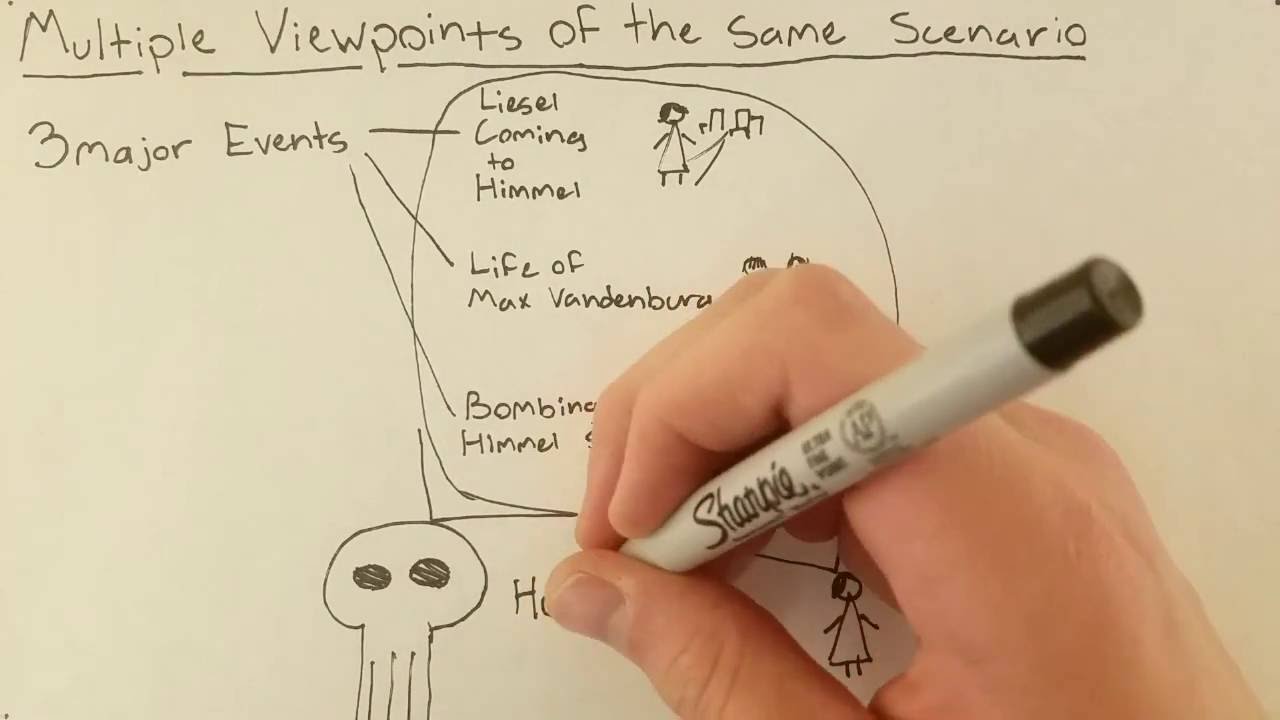 Multiple Viewpoints of the Same Scenario
3 major Events
Liesel
Coming
to
Himmel
Life of
Max Vandenburg
Bombing
Himmel
Sharpie
ULTRA
FINE
POINT
AP